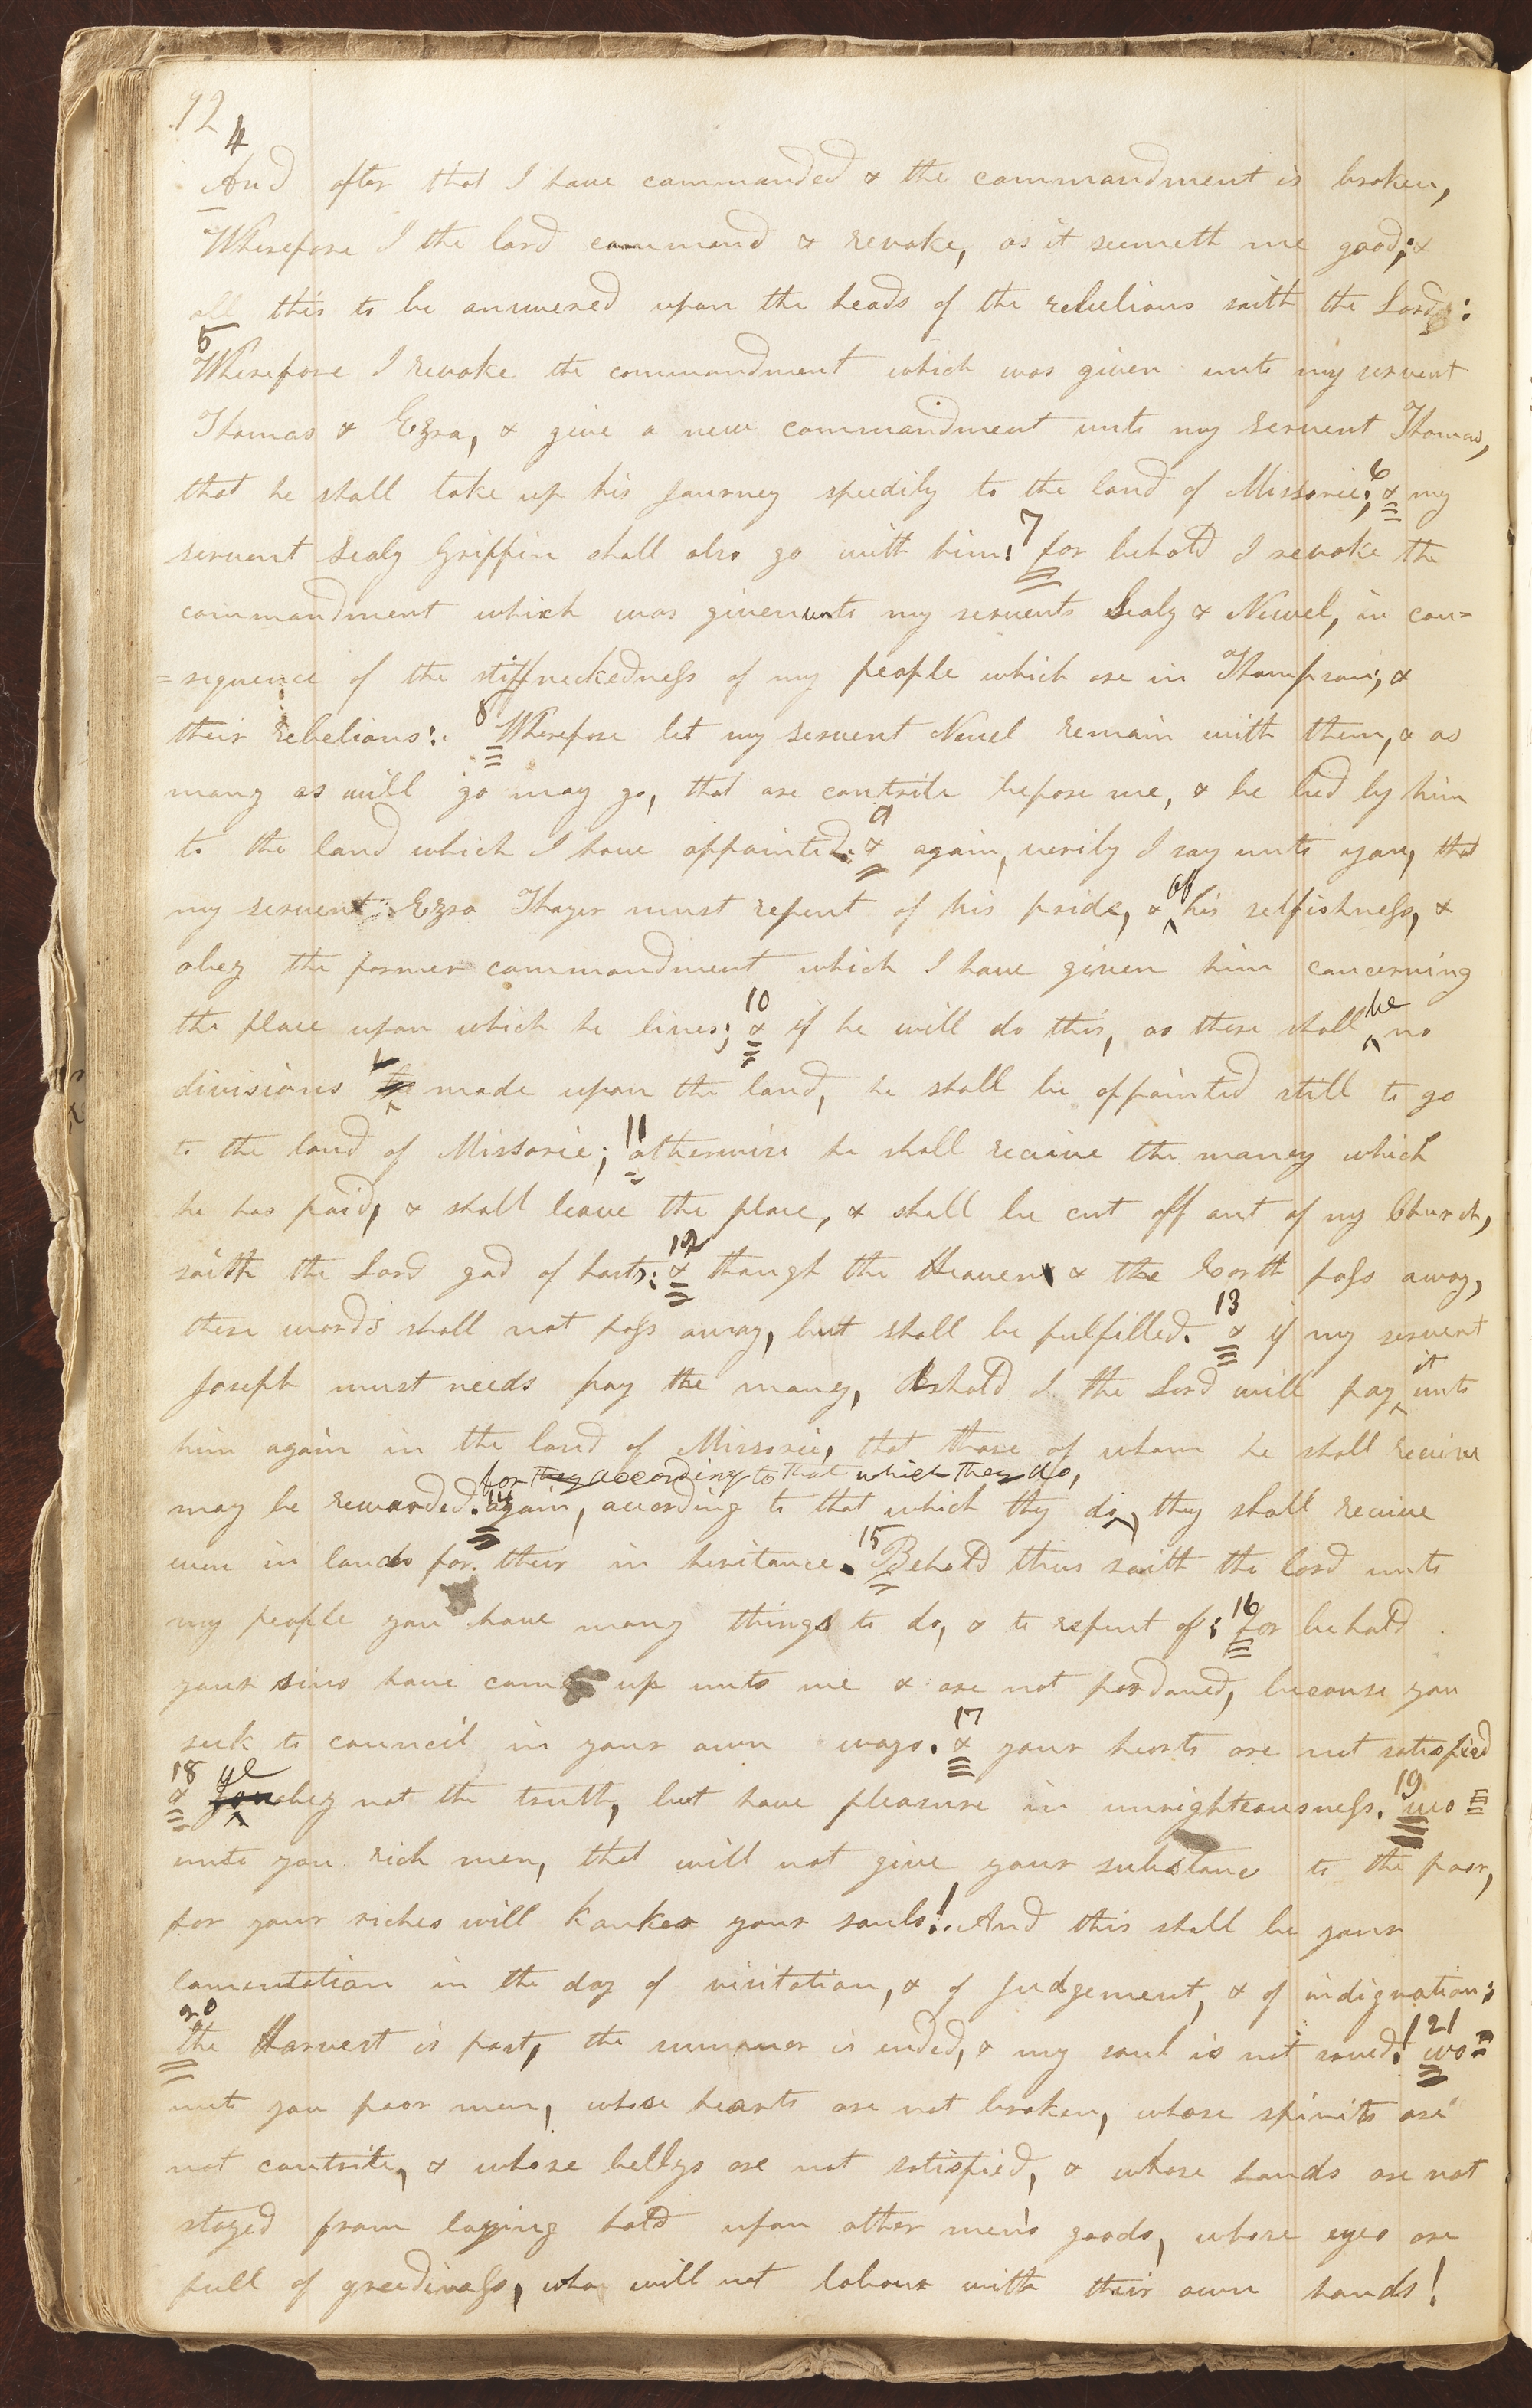 92
4
And after that I have commanded & the commandment is broken,
Wherefore I the lord command & revoke, as it seemeth me good; &
all this to be answered upon the heads of the rebelious saith the Lord:
5
Wherefore I revoke the commandment which was given unto my servent
Thomas & Ezra, & give a new commandment unto my servent Thomas,
that he shall take up his Journey speedily to the land of Missorie; 6 & my
servent Sealy Griffin shall also go with him: 7 for behold I revoke the
commandment which was given unto my servents Sealy & Newel, in con=
=sequence of the stiffneckedness of my people which are in Thompson, &
their rebelions: 8 Wherefore let my servent Newel remain with them, & as
many as will go may go, that are contrite before me, & be led by him
to the land which I have appointed. 9 & again, verily I say unto you, that
my servent Ezra Thayer must repent of his pride, & of his selfishness, &
obey the former commandment which I have given him concerning
the place upon which he lives; 10 & if he will do this, as there shall be no
divisions made upon the land, he shall be appointed still to go
to the land of Missorie; 11 otherwise he shall receive the money which
he has paid, & shall leave the place, & shall be cut off out of my Church,
saith the Lord god of hosts: 12 & though the Heaven & the Earth pass away,
these words shall not pass away, but shall be fulfilled. 13 & if my servent
Joseph must needs pay the money, behold I the Lord will pay it unto
him again in the land of Missorie, that those of whom he shall receive
for they according to that which they do,
may be rewarded. 14 again, according to that which they do, they shall receive
even in lands for their in heritance. 15 Behold thus saith the lord unto
my people you have many things to do, & to repent of; 16 for behold
your sins have came up unto me & are not pardoned, because you
seek to council in your own ways. 17 & your hearts are not satisfied
18 & ye obey not the truth, but have pleasure in unrighteousness. 19 wo
unto you rich men, that will not give your substance to the poor,
for your riches will kanker your souls! And this shall be your
lamentation in the day of visitation, & of Judgement, & of indignation;
20
the Harvest is past, the summer is ended, & my soul is not saved! 21 wo
unto you poor men, whose hearts are not broken, whose spirits are
not contrite, & whose bellys are not satisfied, & whose hands are not
stayed from laying hold upon other men's goods, whose eyes are
full of greediness, who will not labour with their own hands!